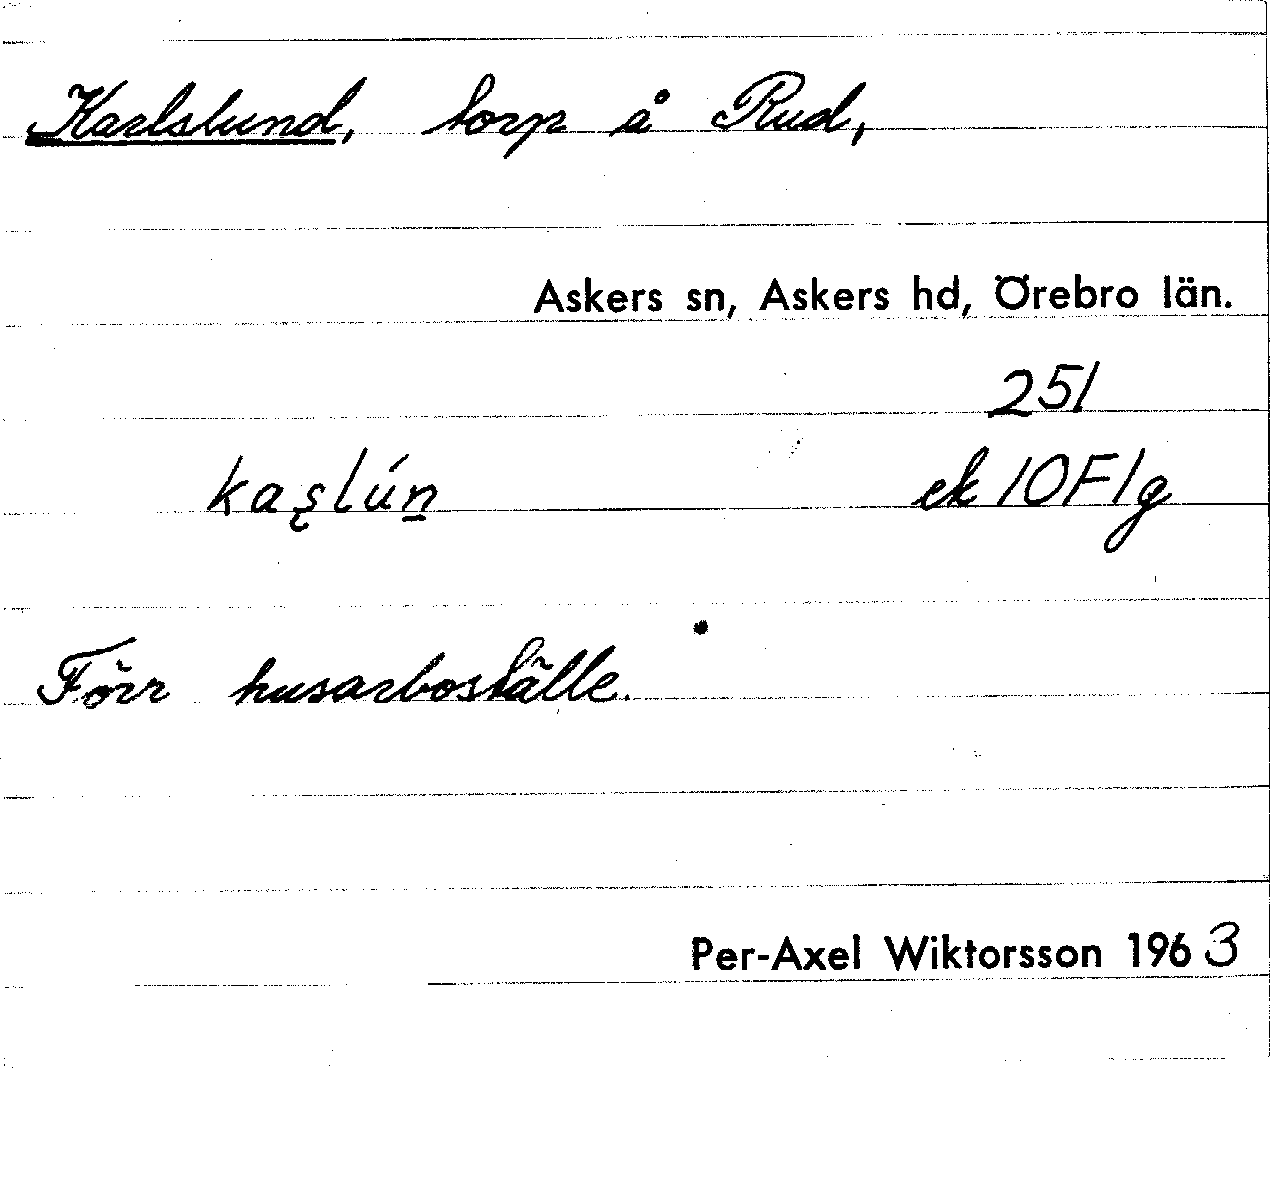 Karlslund, torp å Rud,
Askers sn, Askers hd, Örebro län.
251
kaʂlún̲ ek 10F1g
Förr husarboställe.
Per-Axel Wiktorsson 1963